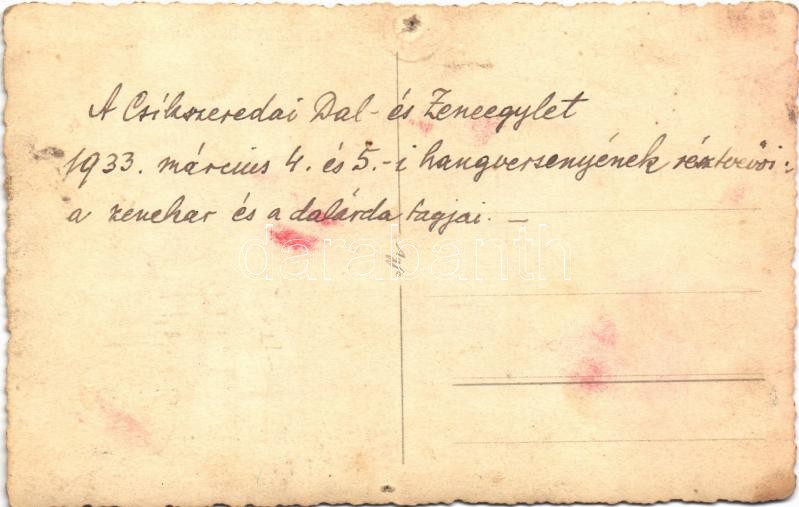 A Csikszeredai Dal- és Zeneegylet
1933. március 4. és 5.-i hangversenyének résztvevői:
a zenekar és a dalárda tagjai. —
darabanth